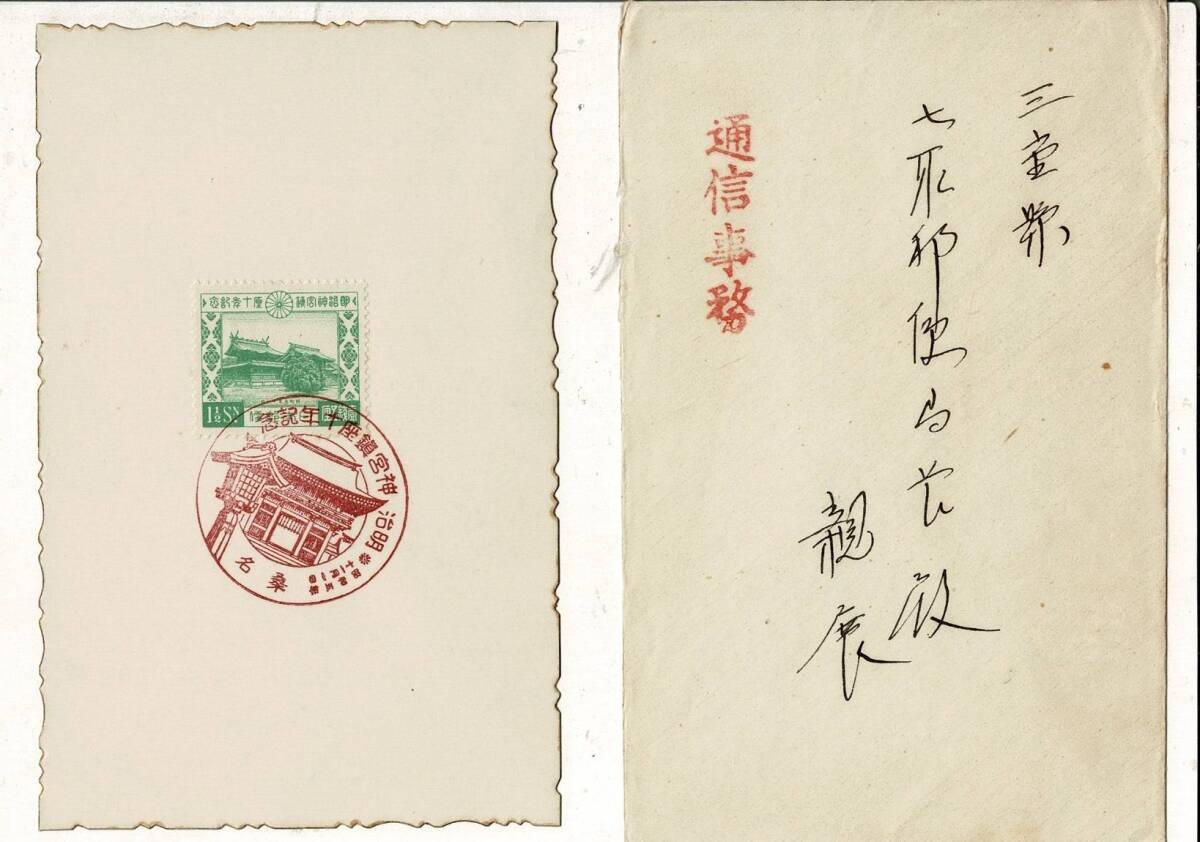 明治神宮鎮座十年記念
1½Sn.
明治神宮鎮座十年記念
桑名
三重縣
七取郵便局長殿
親展
通信事務